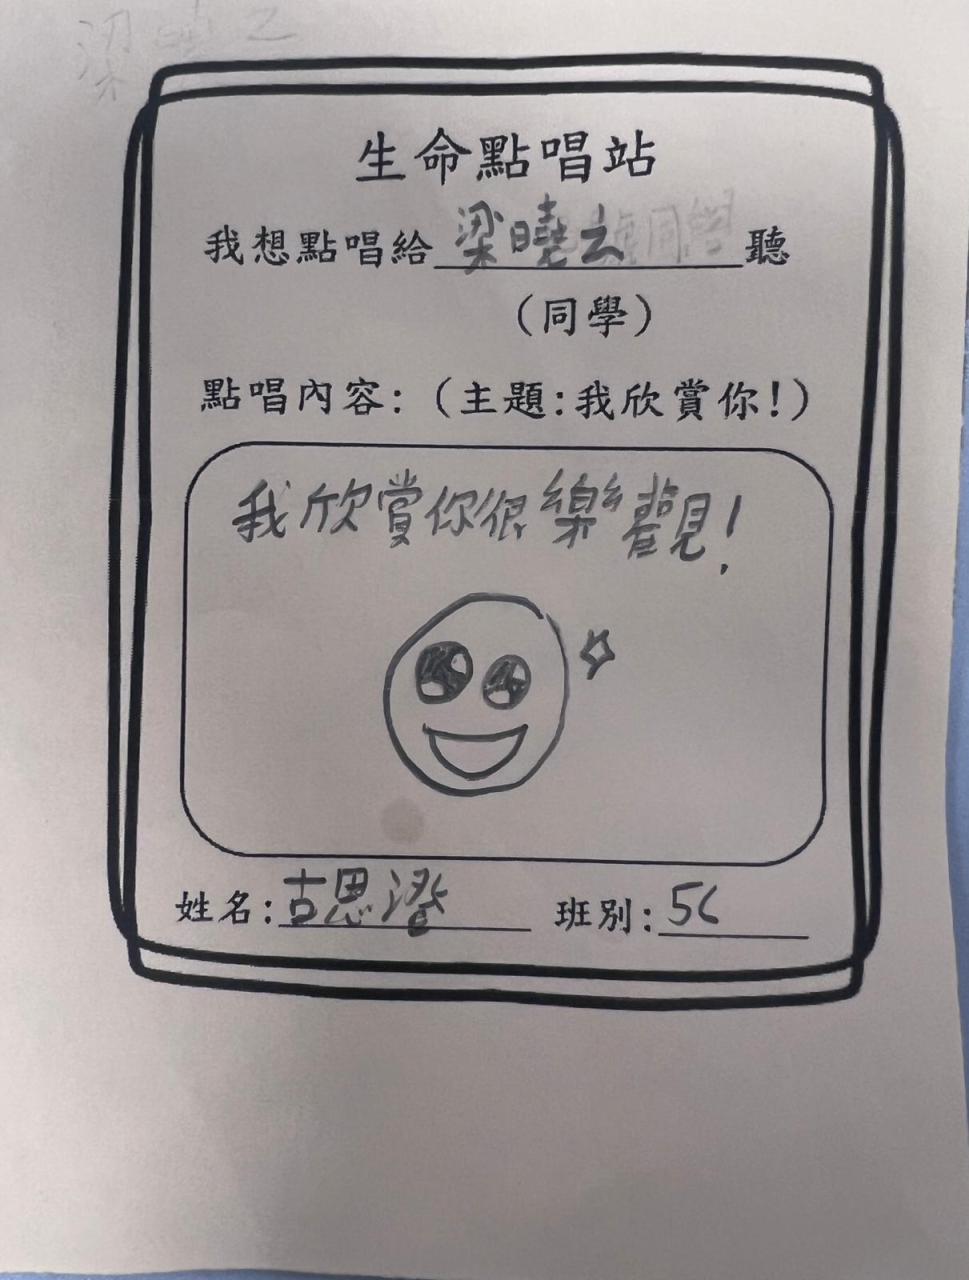 生命點唱站
我想點唱給梁曉云聽
(同學)
點唱內容:(主題:我欣賞你!)
我欣賞你很樂觀!
姓名:古恩澄 班別:5C